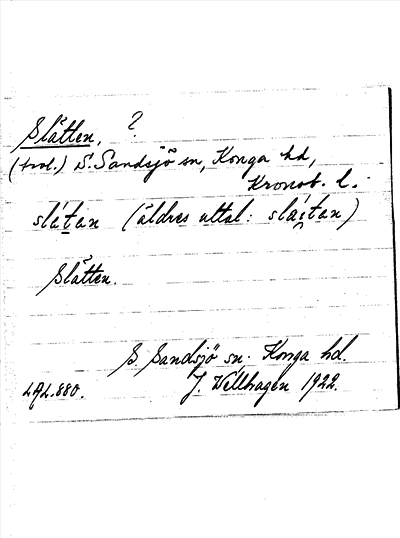 Slätten, ?
(trol.) S. Sandsjö sn, Konga hd,
Kronob. l.
slátan (äldres uttal: sláɛtan)
Slätten.
S. Sandsjö sn. Konga hd.
LAL.880. J. Wellhagen 1922.